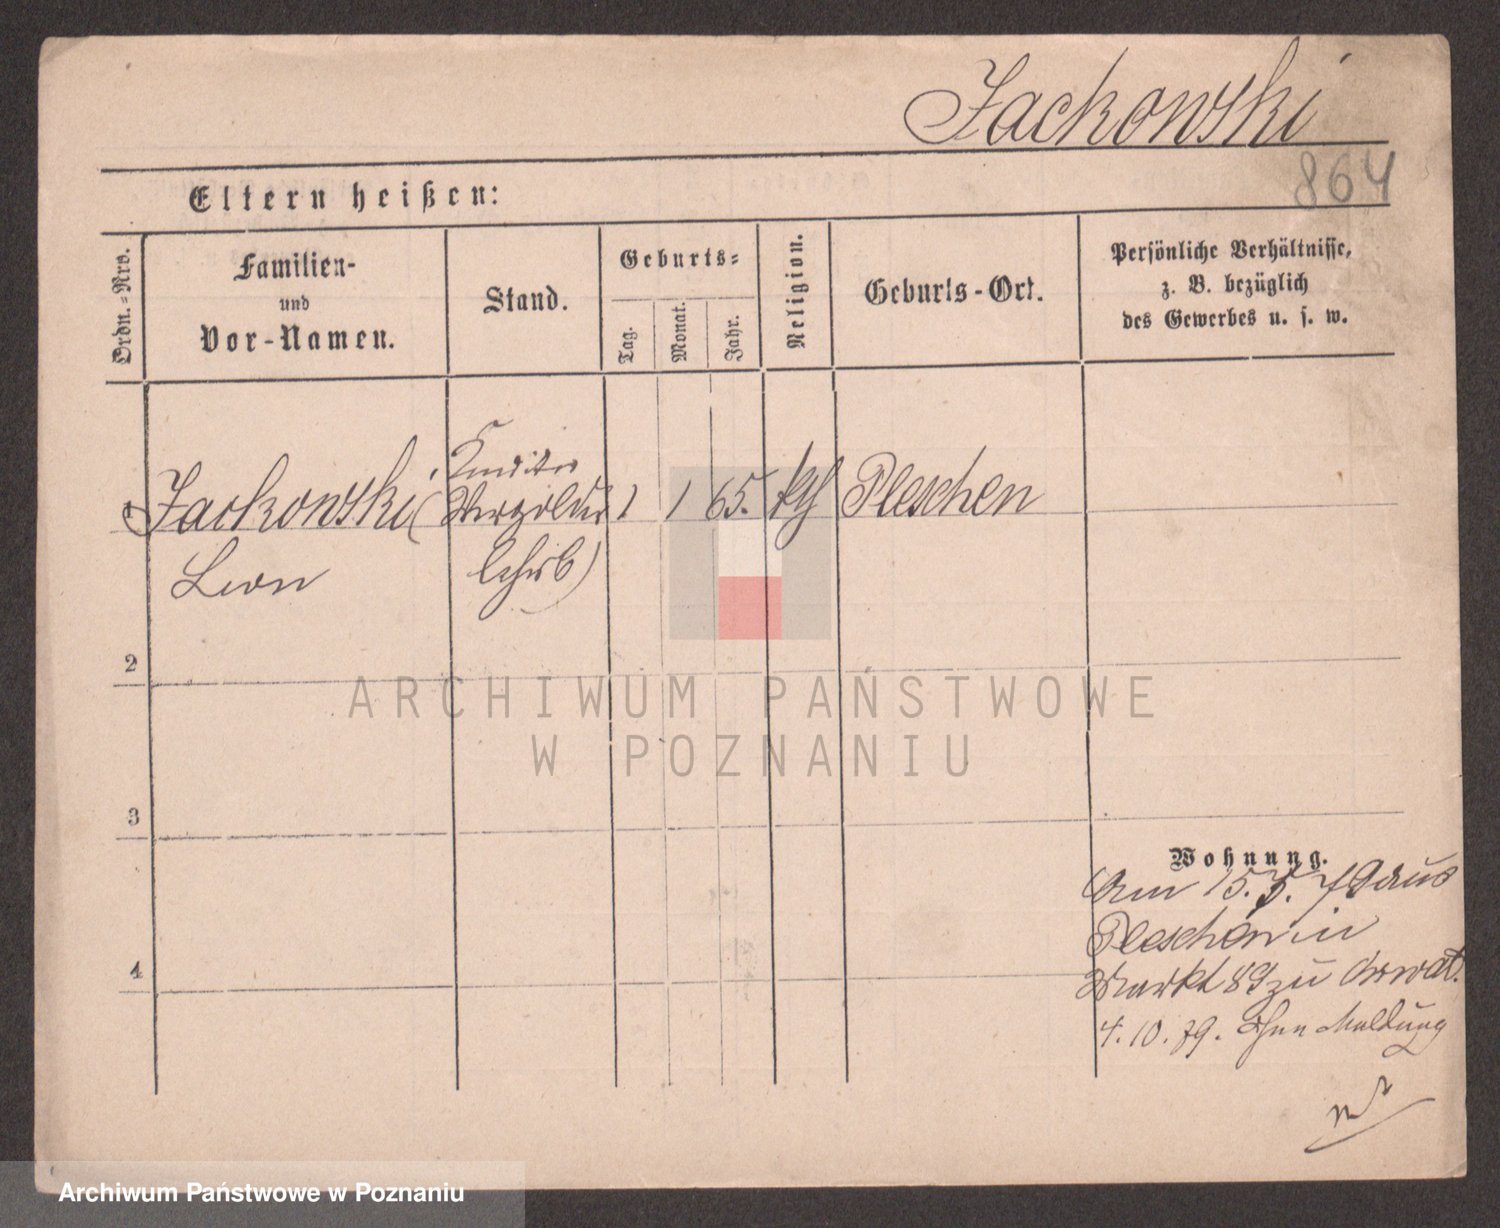 Jackowski
864
Eltern heißen:
Ordn.-Nrs.
Familien-
und
Vor-Namen.
Stand.
Geburts-
Tag.
Monat.
Jahr.
Religion.
Geburts-Ort.
Persönliche Verhältnisse,
z. B. bezüglich
des Gewerbes u. s. w.
1 Jackowski (Vergolder 1 1 65. kth Pleschen
Leon
2
3
4
Wohnung.
Am 15.5.79 aus
Pleschen in
Markt 89 zu
4.10.79. Ohne Meldung
ARCHIWUM PAŃSTWOWE
W POZNANIU
Archiwum Państwowe w Poznaniu